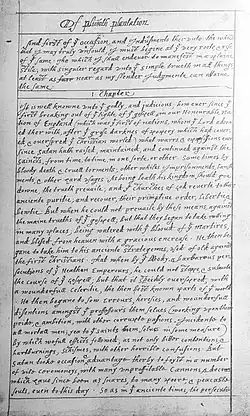 Of Plimoth plantation
And first of yᵉ occasion, and Indusments ther unto; the which
that I may truly unfould, I must begine at yᵉ very roote & rise
of yᵉ same. The which I shall endevor to manefest in a plaine
stile, with singuler regard unto yᵉ simple trueth in all things,
at least as near as my slender Judgmente can attaine
the same.
1. Chapter
It is well knowne unto yᵉ godly, and judicious, how ever since yᵉ
first breaking out of yᵉ lighte of yᵉ gospell, in our Honourable Na-
tion of England (which was yᵉ first of nations, whom yᵉ Lord adorn-
ed ther with, after yᵗ grosse darknes of popery which had cover-
ed, & overspred yᵉ christian world) what warrs, & oppositions ever
since Satan hath raised, maintained, and continued against the
saincts, from time, to time, in one sorte, or other. Some times by
bloody death & cruell torments, other whiles Imprisonments, banish-
ments, & other hard usages. As being loath his kingdom should goe
downe, the trueth prevaile; and yᵉ churches of God reverte to their
anciente puritie; and recover, their primative order, libertie, &
bewtie. But when he could not prevaile by these means, against
the maine trueths of yᵉ gospell, but that they began to take rooting
in many places; being watered with yᵉ bloud of yᵉ martyrs,
and blessed from heaven with a gracious encrease. He then be-
gane to take him to his anciente strategemes, used of old against
the first christians. That when by yᵉ bloody, & barbarous per-
secutions of yᵉ Heathen Emperours, he could not stoppe, & subverte
the course of yᵉ gospell; but that it speedily overspred, with
a wounderfull celeritie, the then best known parts of yᵉ world.
He then begane to sow errours, heresies, and wounderfull
dissentions amongst yᵉ professours them selves (working upon their
pride, & ambition, with other corrupte passions, Incidente to
all mortall men, yea to yᵉ saints them selves in some measure)
by which wofull effects followed; as not only bitter contentions, &
hartburnings, schismes, with other horrible confusions. But
Satan tooke occasion & advantage therby to foyst in a number
of vile ceremoneys, with many unprofitable Cannons, & decrees
which have since been as snares, to many poore, & peaceable
souls, even to this day. So as in yᵉ anciente times, the persecution